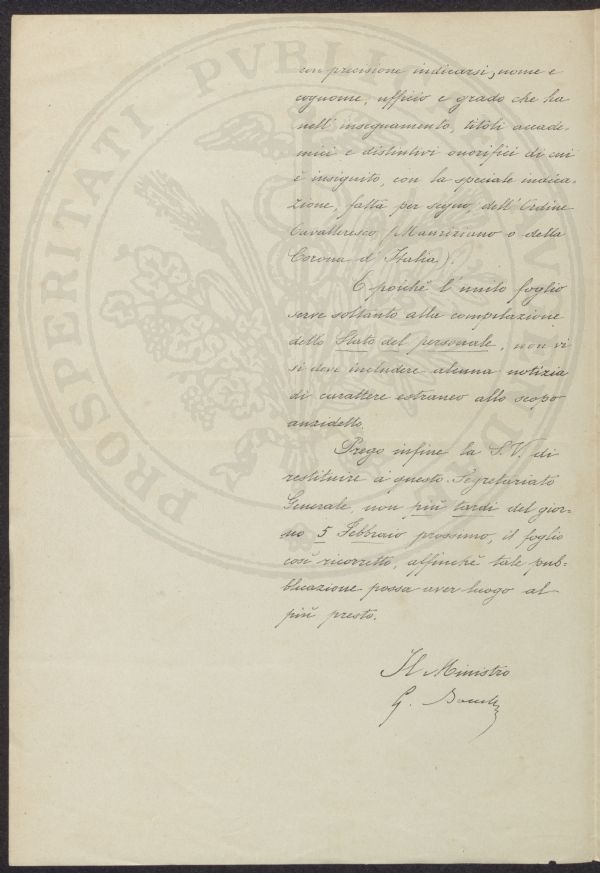 con precisione indicarsi, nome e
cognome, ufficio e grado che ha
nell' insegnamento, titoli accade-
mici e distintivi onorifici di cui
è insignito, con la speciale indica-
zione, fatta per segno, dell' Ordine
Cavalleresco (Mauriziano o della
Corona d' Italia).
E poichè l' unito foglio
serve soltanto alla compilazione
dello Stato del personale, non vi
si deve includere alcuna notizia
di carattere estraneo allo scopo
anzidetto.
Prego infine la S. V. di
restituire a questo Segretariato
Generale, non più tardi del gior-
no 5 Febbraio prossimo, il foglio
così ricorretto, affinchè tale pub-
blicazione possa aver luogo al
più presto.
Il Ministro
G.
PROSPERITATI PVBLICAE